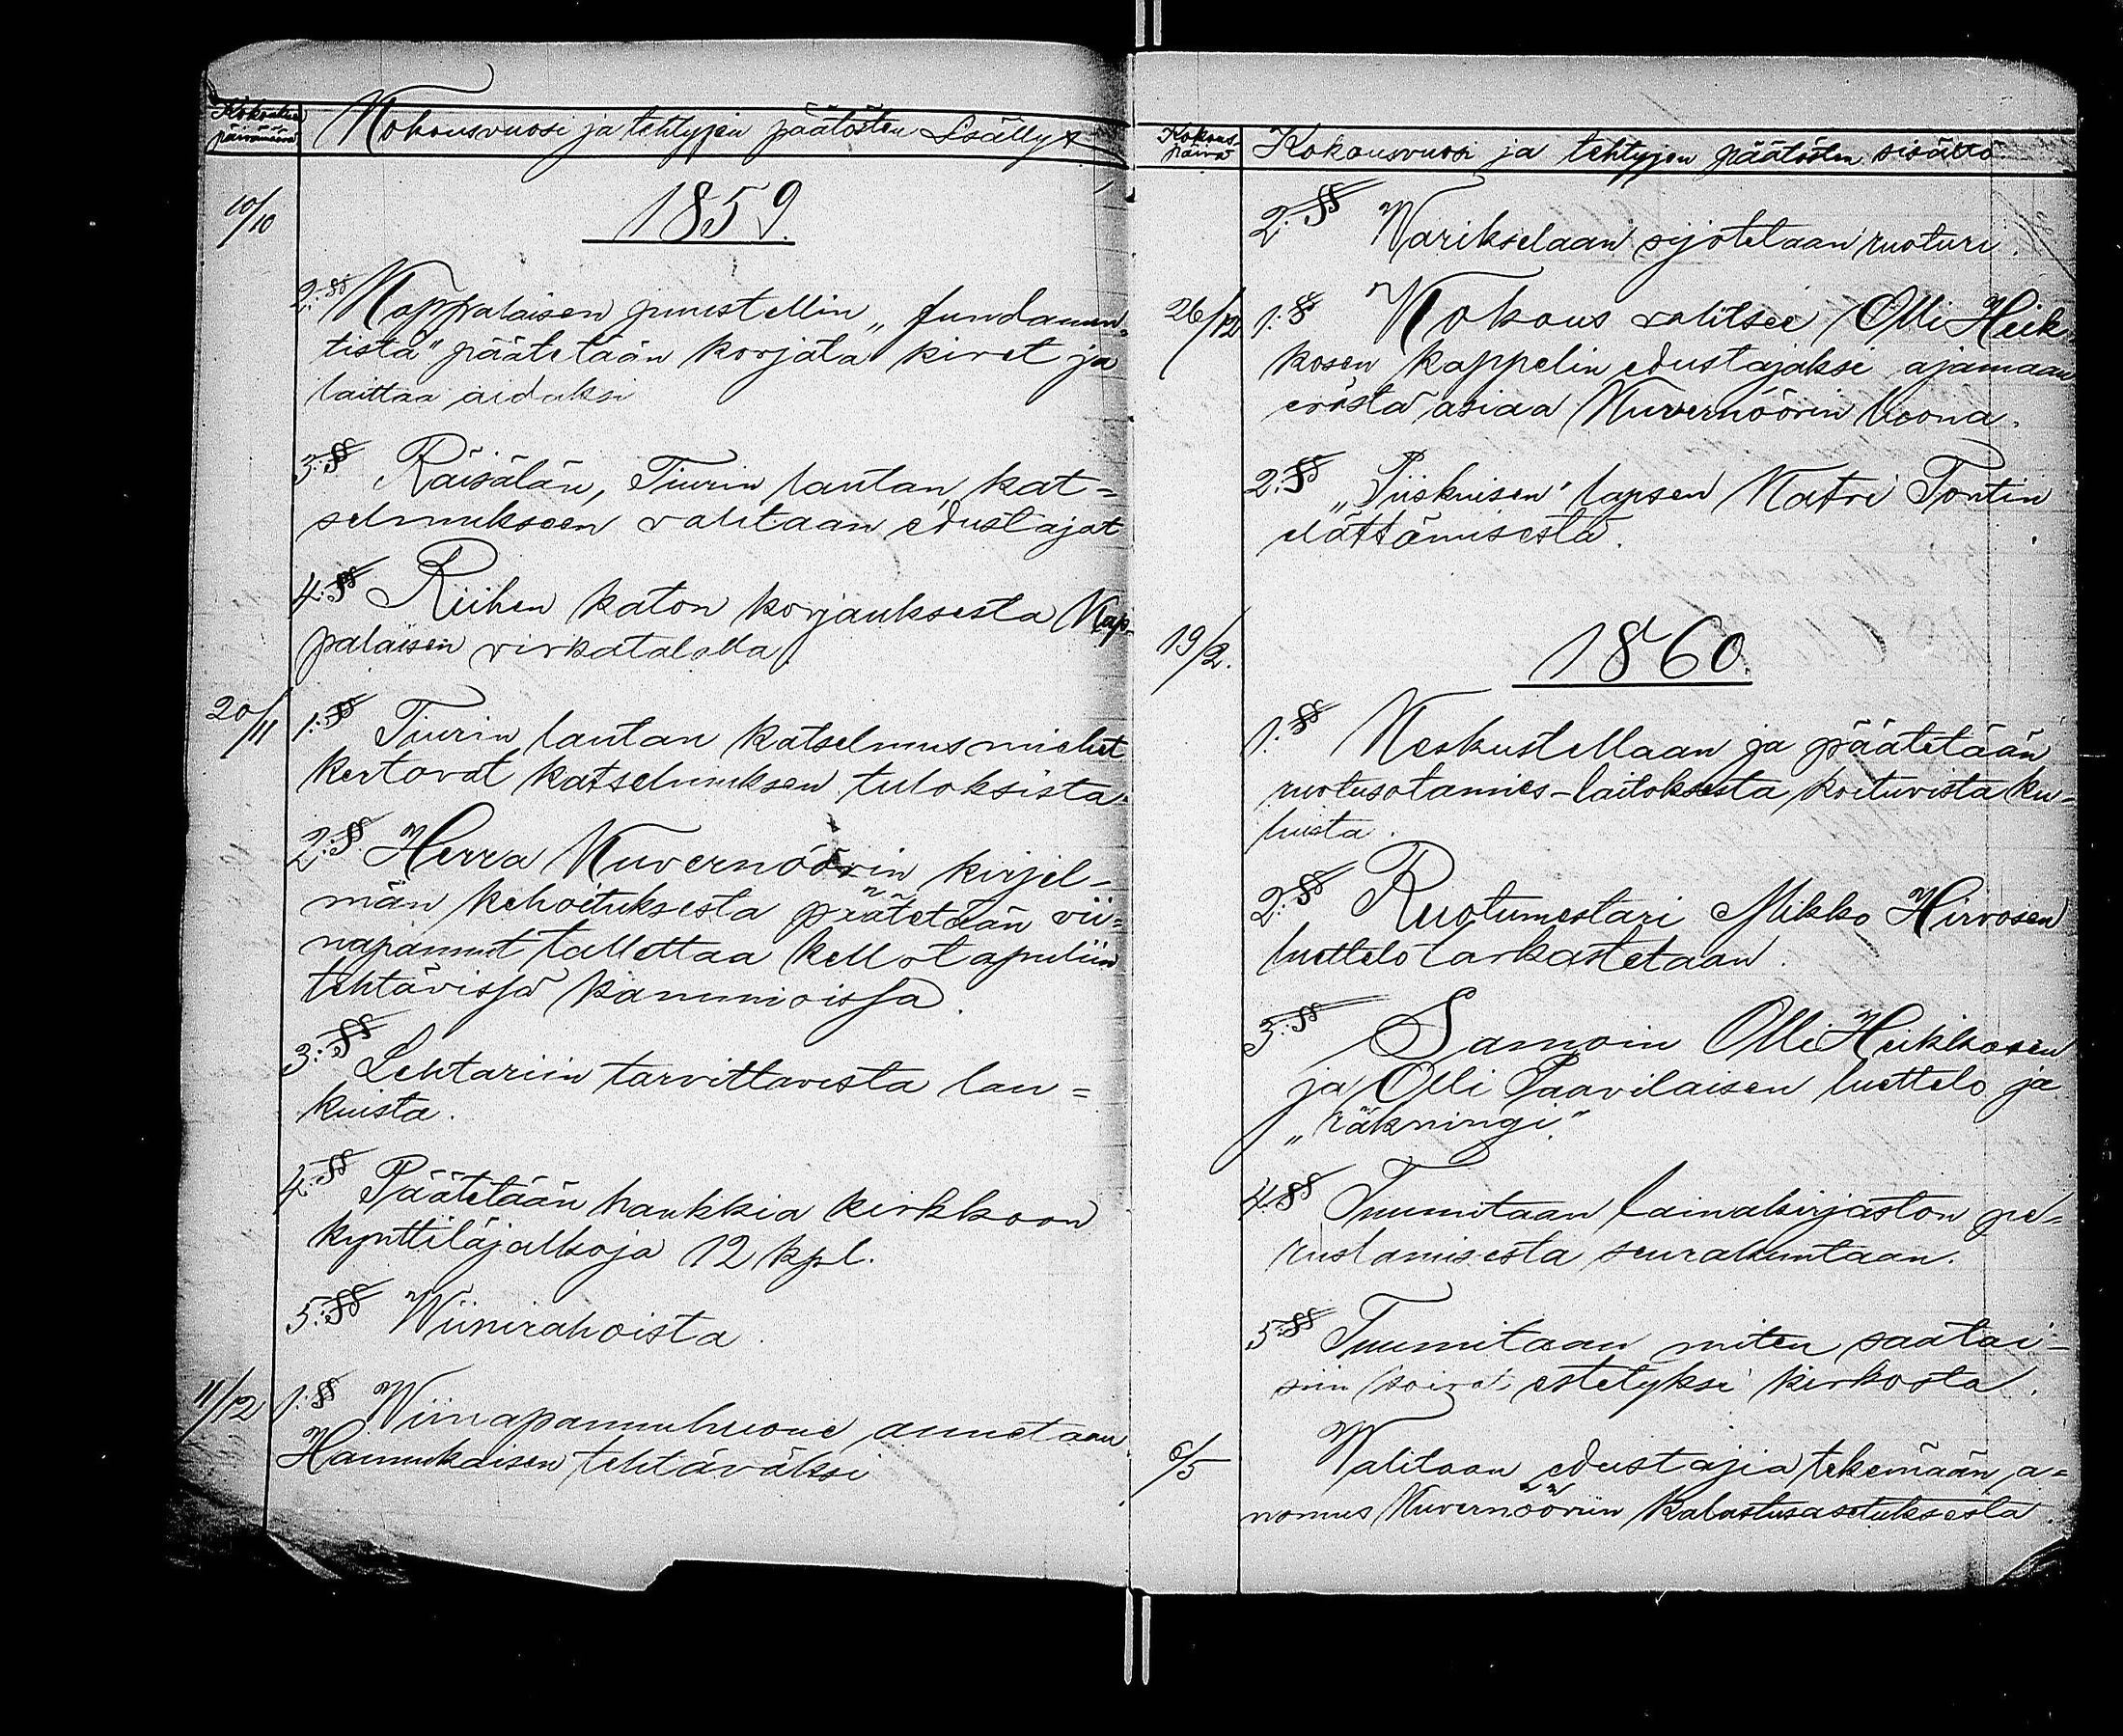 Kokouksen
päivämäärä
Kokousvuosi ja tehtyjen päätösten Sisällys
10/10
1859.
2:§§ Kappalaisen puustellin „fundamen-
tista" päätetään korjata kivet ja
laittaa aidaksi
3:§§ Räisälän, Tiurin lautan kat=
selmukseen valitaan edustajat
4:§§ Riihen katon korjauksesta Kap-
palaisen virkatalolla.
20/11
1:§§ Tiurin lautan katselmusmiehet
kertovat katselmuksen tuloksista.
2:§§ Herra Kuvernöörin kirjel-
män kehoituksesta päätetään vii=
napannut tallettaa kellotapuliin
tehtävissä kammioissa.
3:§§ Lehtariin tarvittavista lan=
kuista.
4:§§ Päätetään hankkia kirkkoon
kynttiläjalkoja 12 kpl.
5:§§ Wiinirahoista.
11/12
1:§§ Wiinapannuhuone annetaan
Hannukaisen tehtäväksi
Kokous-
päivä
Kokousvuosi ja tehtyjen päätösten sisältö.
2:§§ Warikselaan sijotetaan ruoturi.
26/12
1:§ Kokous valitsee Olli Heik-
kosen kappelin edustajaksi ajamaan
eröstä asiaa Kuvernöörin luona.
2:§§ „Piiskuisen" lapsen Katri Tontin
elättämisestä.
19/2.
1860.
1:§§ Keskustellaan ja päätetään
ruotusotamies-laitoksesta koituvista ku=
luista.
2:§§ Ruotumestari Mikko Hirvosen
luettelo tarkastetaan.
3:§§ Samoin Olli Heikkosen
ja Olli Paavilaisen luettelo ja
„räkningi"
4:§§ Tuumitaan lainakirjaston pe=
rustamisesta seurakuntaan.
5:§§ Tuumitaan miten saatai-
siin koirat estetyksi kirkosta.
6/5
Walitaan edustajia tekemään a=
nomus Kuvernööriin kalastusasetuksesta.